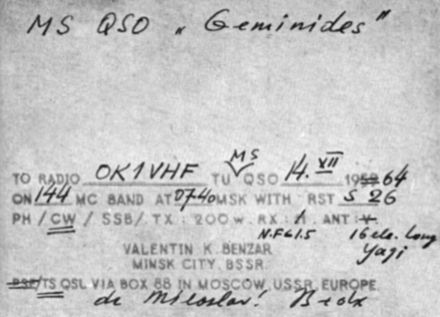 MS QSO „Geminides"
MS
TO RADIO OK1VHF TU QSO 14. XII 1959 64
ON 144 MC BAND AT 0740 MSK WITH RST S 26
PH / CW / SSB / TX : 200 W. RX : A . ANT : Y
N.F. 1.5 16 ele. Long
Yagi
VALENTIN K. BENZAR
MINSK CITY, BSSR
PSE/TS QSL VIA BOX 88 IN MOSCOW, USSR, EUROPE.
dr Miloslav!